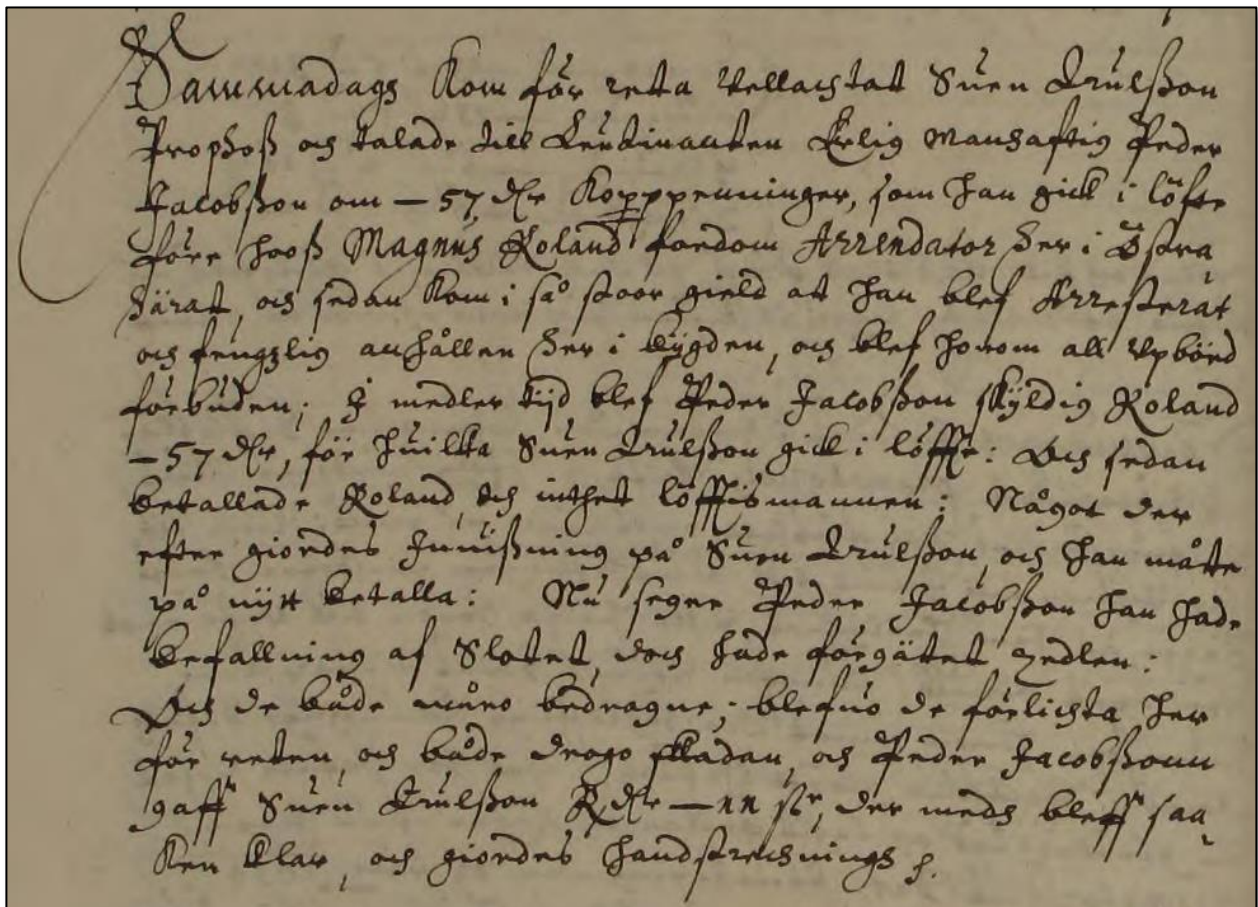 Sammadags Kom för retta Vellachtat Suen Trulßon
Prophoß och talade till Leutinanten Erlig Manhaftig Peder
Jacobßon om — 57 dlr Kopppenninger, som han gick i löfte
före hooß Magnus Roland fordom Arrendator her i Östra
härat, och sedan Kom i så stoor gield at han blef Arresterat
och fengslig anhållen her i bygden, och blef honom all Vpbörd
förbuden; I medler tijd blef Peder Jacobßon skyldig Roland
— 57 dlr, för huilka Suen Trulßon gick i löffte: Och sedan
betallade Roland, och inthet löfftismannen: Något der
efter giordes Inuißning på Suen Trulßon, och han måtte
på nytt betalla: Nu seger Peder Jacobßon han hade
befallning af Slotet, doch hade förgätet zedlen:
Och de både wuro bedragne; blefuo de förlichta her
för retten, och både drogo skadan, och Peder Jacobßonn
gaff Suen Trulßon R dlr — nn st, der medh bleff saa-
Ken klar, och giordes handstrechnings